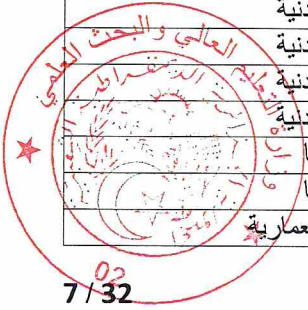 دنية
دنية
دنية
دنية
ا
ا
عمارية
وزارة التعليم العالي والبحث العلمي
02
7 / 32